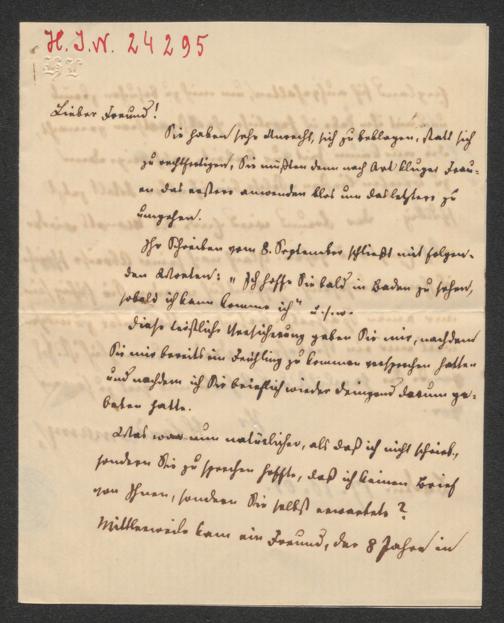 H. I. N. 24295
Lieber Freund!
Sie haben sehr Unrecht, sich zu beklagen, statt sich
zu rechtfertigen, Sie müßten denn nach Art kluger Frau-
en das erstere anwenden blos um das letztere zu
umgehen.
Ihr Schreiben vom 8. September schließt mit folgen-
den Worten: „Ich hoffe Sie bald in Baden zu sehen,
sobald ich kann komme ich" u.s.w.
Diese Versicherung gaben Sie mir, nachdem
Sie mir bereits im Frühling zu kommen versprochen hatten
und nachdem ich Sie brieflich wieder dringend darum ge-
beten hatte.
Was war nun natürlicher, als daß ich nicht schrieb,
sondern Sie zu sprechen hoffte, daß ich keinen Brief
von Ihnen, sondern Sie selbst erwartete?
Mittlerweile kam ein Freund, der 8 Jahre in